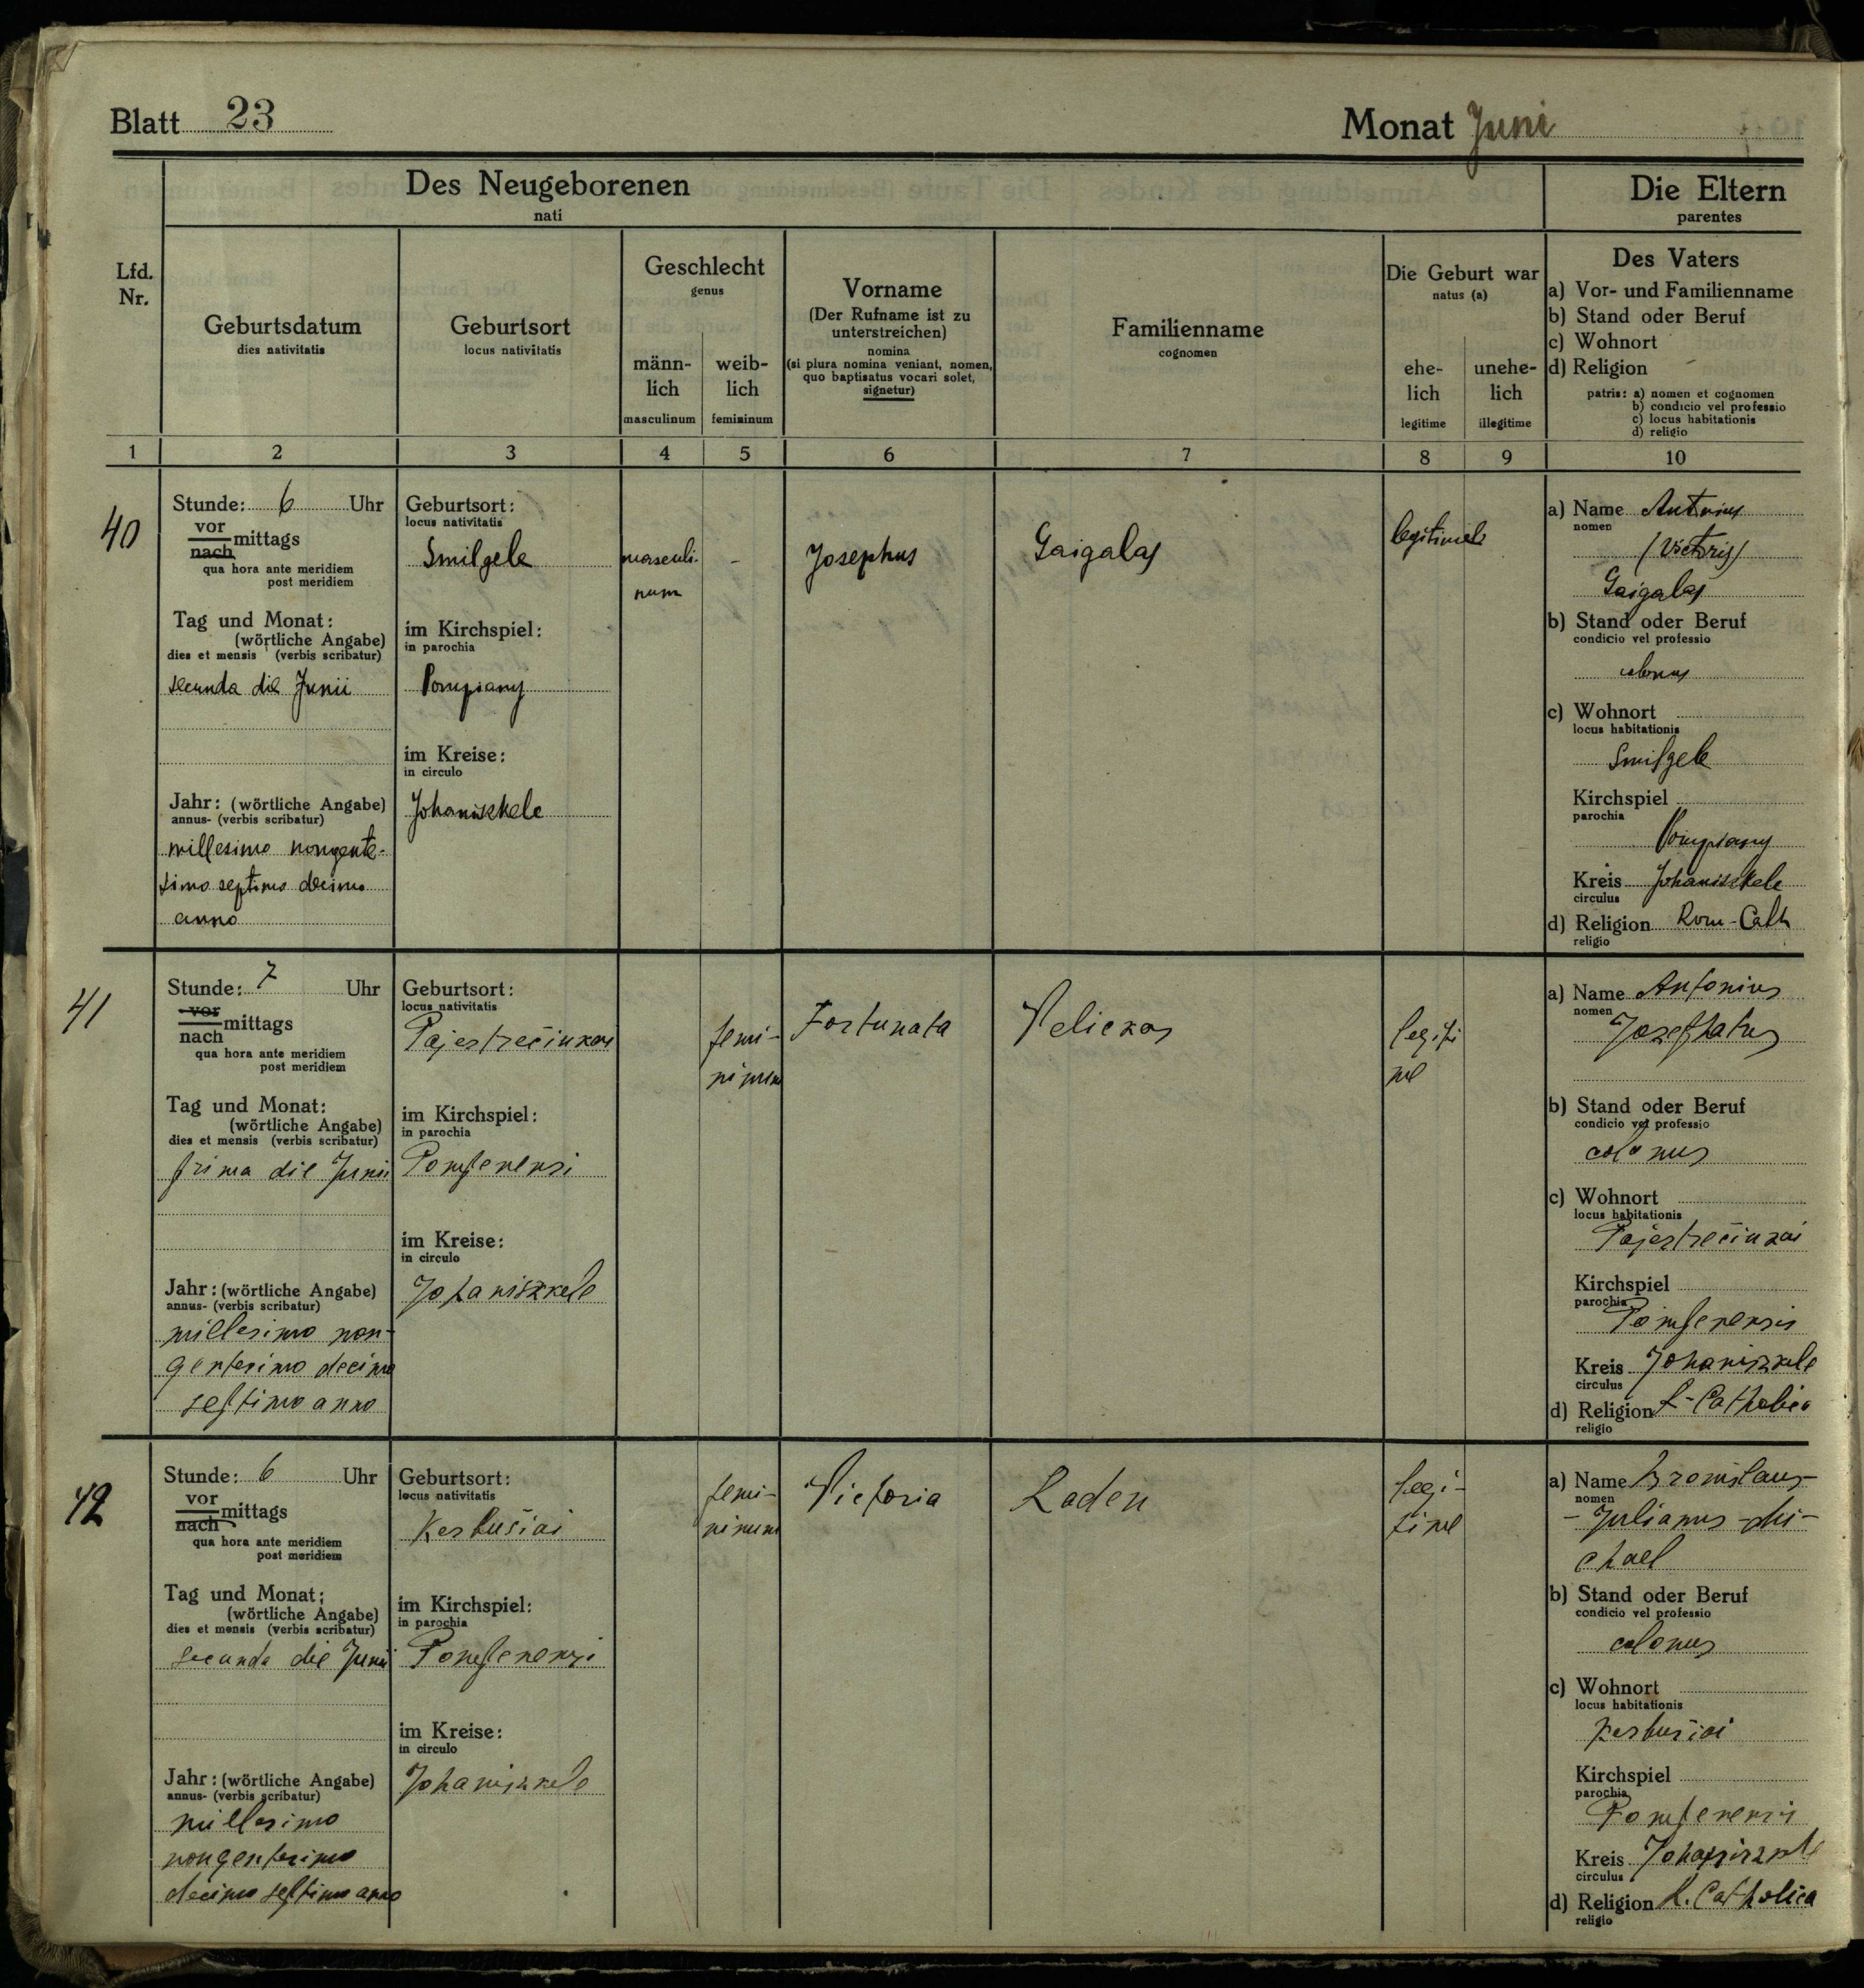 Blatt 23
Monat Juni
Des Neugeborenen
nati
Die Eltern
parentes
Lfd.
Nr.
Geburtsdatum
dies nativitatis
Geburtsort
locus nativitatis
Geschlecht
genus
männ-
lich
masculinum
weib-
lich
femininum
Vorname
(Der Rufname ist zu
unterstreichen)
nomina
(si plura nomina veniant, nomen,
quo baptisatus vocari solet,
signetur)
Familienname
cognomen
Die Geburt war
natus (a)
ehe-
lich
legitime
unehe-
lich
illegitime
Des Vaters
a) Vor- und Familienname
b) Stand oder Beruf
c) Wohnort
d) Religion
patris: a) nomen et cognomen
b) condicio vel professio
c) locus habitationis
d) religio
1 2 3 4 5 6 7 8 9 10
40
Stunde: 6 Uhr
vor
nach mittags
qua hora ante meridiem
post meridiem
Tag und Monat:
(wörtliche Angabe)
dies et mensis (verbis scribatur)
secunda die Junii
Jahr: (wörtliche Angabe)
annus- (verbis scribatur)
millesimo nongente-
simo septimo decimo
anno
Geburtsort:
locus nativitatis
Smilgele
im Kirchspiel:
in parochia
Pompiany
im Kreise:
in circulo
Johaniszkele
masculi-
num
-
Josephus
Gaigalas
legitime
a) Name Antonius
nomen
(Victoris)
Gaigalas
b) Stand oder Beruf
condicio vel professio
colonus
c) Wohnort
locus habitationis
Smilgele
Kirchspiel
parochia
Pompiany
Kreis Johaniszkele
circulus
d) Religion Rom-Cath
religio
41
Stunde: 7 Uhr
vor
nach mittags
qua hora ante meridiem
post meridiem
Tag und Monat:
(wörtliche Angabe)
dies et mensis (verbis scribatur)
prima die Junii
Jahr: (wörtliche Angabe)
annus- (verbis scribatur)
millesimo non-
gentesimo decimo
septimo anno
Geburtsort:
locus nativitatis
im Kirchspiel:
in parochia
Pompenensi
im Kreise:
in circulo
Johaniszkele
femi-
ninum
Fortunata
Veliczas
legiti
me
a) Name Antonius
nomen
Josephatus
b) Stand oder Beruf
condicio vel professio
colonus
c) Wohnort
locus habitationis
Kirchspiel
parochia
Pompenensis
Kreis Johaniszkele
circulus
d) Religion R-Catholica
religio
42
Stunde: 6 Uhr
vor
nach mittags
qua hora ante meridiem
post meridiem
Tag und Monat:
(wörtliche Angabe)
dies et mensis (verbis scribatur)
secunda die Junii
Jahr: (wörtliche Angabe)
annus- (verbis scribatur)
millesimo
nongentesimo
decimo septimo anno
Geburtsort:
locus nativitatis
Kerbušiai
im Kirchspiel:
in parochia
Pompenensi
im Kreise:
in circulo
Johaniszkele
femi-
ninum
Victoria
Laden
legi-
time
a) Name Bronislaus-
nomen
- Julianus -Mi-
chael
b) Stand oder Beruf
condicio vel professio
colonus
c) Wohnort
locus habitationis
Kerbušiai
Kirchspiel
parochia
Pompenensis
Kreis Johaniszkele
circulus
d) Religion R. Catholica
religio